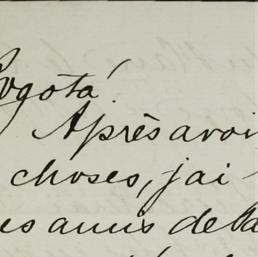 Bogotá
Après avoi
choses, j'ai
es amis de Pa